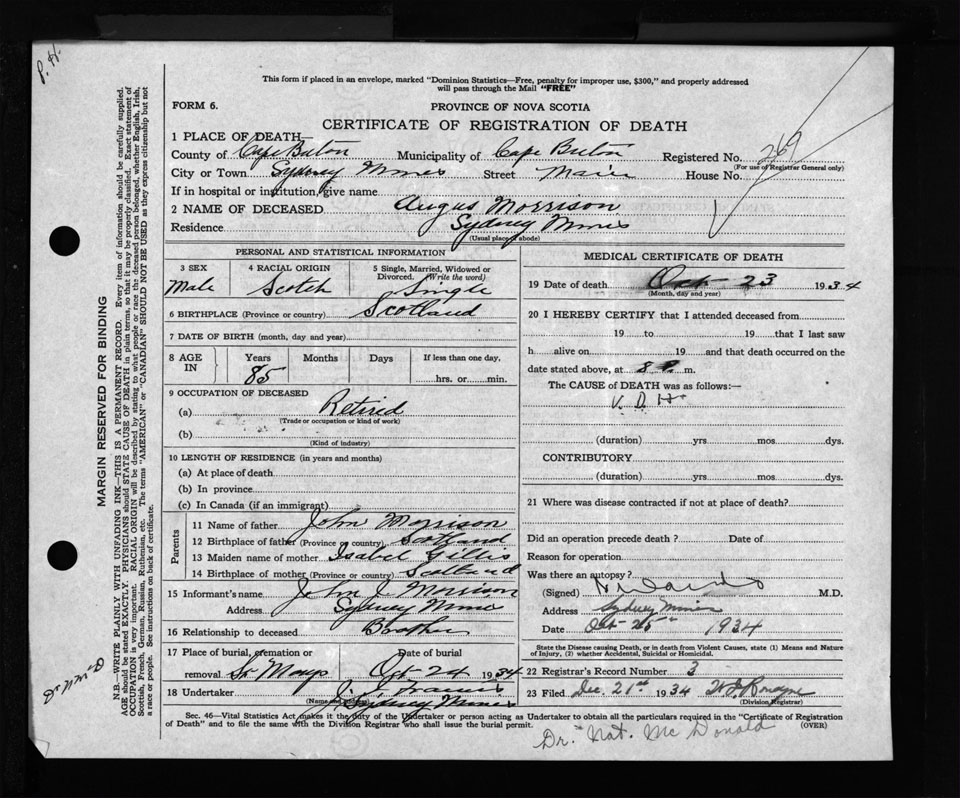 P. H.
This form if placed in an envelope, marked "Dominion Statistics—Free, penalty for improper use, $300," and properly addressed
will pass through the Mail "FREE"
FORM 6.
PROVINCE OF NOVA SCOTIA
CERTIFICATE OF REGISTRATION OF DEATH
1 PLACE OF DEATH—
County of Cape Breton Municipality of Cape Breton Registered No. 269
(For use of Registrar General only)
City or Town Sydney Mines Street Main House No.
If in hospital or institution, give name
2 NAME OF DECEASED Angus Morrison
Residence Sydney Mines
(Usual place of abode)
PERSONAL AND STATISTICAL INFORMATION
3 SEX Male
4 RACIAL ORIGIN Scotch
5 Single, Married, Widowed or Divorced. (Write the word) Single
6 BIRTHPLACE (Province or country) Scotland
7 DATE OF BIRTH (month, day and year)
8 AGE IN Years 85 Months Days If less than one day, hrs. or min.
9 OCCUPATION OF DECEASED
(a) Retired
(Trade or occupation or kind of work)
(b)
(Kind of industry)
10 LENGTH OF RESIDENCE (in years and months)
(a) At place of death
(b) In province
(c) In Canada (if an immigrant)
Parents
11 Name of father John Morrison
12 Birthplace of father (Province or country) Scotland
13 Maiden name of mother Isabel Gillis
14 Birthplace of mother (Province or country) Scotland
15 Informant's name John J. Morrison
Address Sydney Mines
16 Relationship to deceased Brother
17 Place of burial, cremation or removal Date of burial
St Marys Oct 24 1934
18 Undertaker J. J.
(Name and address) Sydney Mines
MEDICAL CERTIFICATE OF DEATH
19 Date of death Oct 23 1934
(Month, day and year)
20 I HEREBY CERTIFY that I attended deceased from
19 to 19 that I last saw
h alive on 19 and that death occurred on the
date stated above, at 8 P. m.
The CAUSE of DEATH was as follows:—
V. D. H.
(duration) yrs mos dys.
CONTRIBUTORY
(duration) yrs mos dys.
21 Where was disease contracted if not at place of death?
Did an operation precede death? Date of
Reason for operation
Was there an autopsy?
(Signed) M.D.
Address Sydney Mines
Date Oct 25th 1934
State the Disease causing Death, or in death from Violent Causes, state (1) Means and Nature
of Injury, (2) whether Accidental, Suicidal or Homicidal.
22 Registrar's Record Number 3
23 Filed Dec. 21st 1934
(Division Registrar)
Sec. 46—Vital Statistics Act makes it the duty of the Undertaker or person acting as Undertaker to obtain all the particulars required in the "Certificate of Registration
of Death" and to file the same with the Division Registrar who shall issue the burial permit. (OVER)
Dr. Nat. McDonald
MARGIN RESERVED FOR BINDING
N.B.—WRITE PLAINLY WITH UNFADING INK—THIS IS A PERMANENT RECORD. Every item of information should be carefully supplied.
AGE should be stated EXACTLY. PHYSICIANS should STATE CAUSE OF DEATH in plain terms, so that it may be properly classified. Exact statement of
OCCUPATION is very important. RACIAL ORIGIN will be described by stating to what people or race the deceased person belonged, whether English, Irish,
Scottish, French, German, Russian, Ruthenian, etc. The terms "AMERICAN" or "CANADIAN" SHOULD NOT BE USED as they express citizenship but not
a race or people. See instructions on back of certificate.